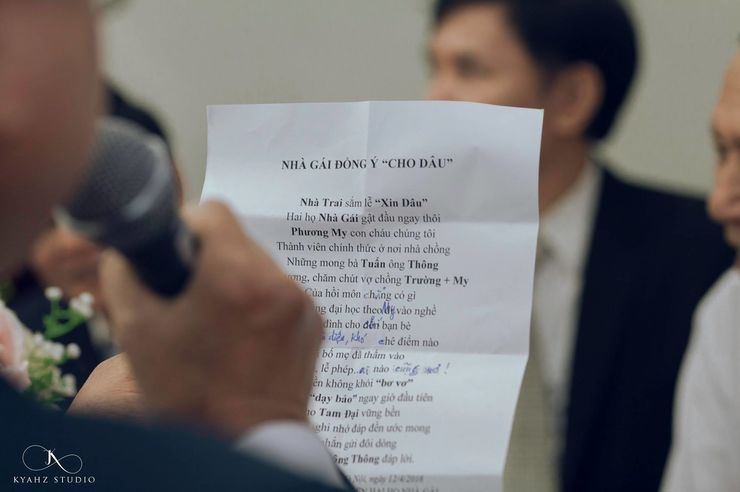 NHÀ GÁI ĐỒNG Ý “CHO DÂU”
Nhà Trai sắm lễ “Xin Dâu”
Hai họ Nhà Gái gật đầu ngay thôi
Phương My con cháu chúng tôi
Thành viên chính thức ở nơi nhà chồng
Những mong bà Tuấn ông Thông
ương, chăm chút vợ chồng Trường + My
Của hồi môn chẳng có gì
đại học theo My vào nghề
đình cho đến bạn bè
khó chê điểm nào
bố mẹ đã thấm vào
lễ phép nào cũng
ên không khỏi “bơ vơ”
“dạy bảo” ngay giờ đầu tiên
Tam Đại vững bền
ghi nhớ đáp đền ước mong
nhắn gửi đôi dòng
Thông đáp lời.
Nội, ngày 12/4/2018
HAI HỌ NHÀ GÁI
KYAHZ STUDIO